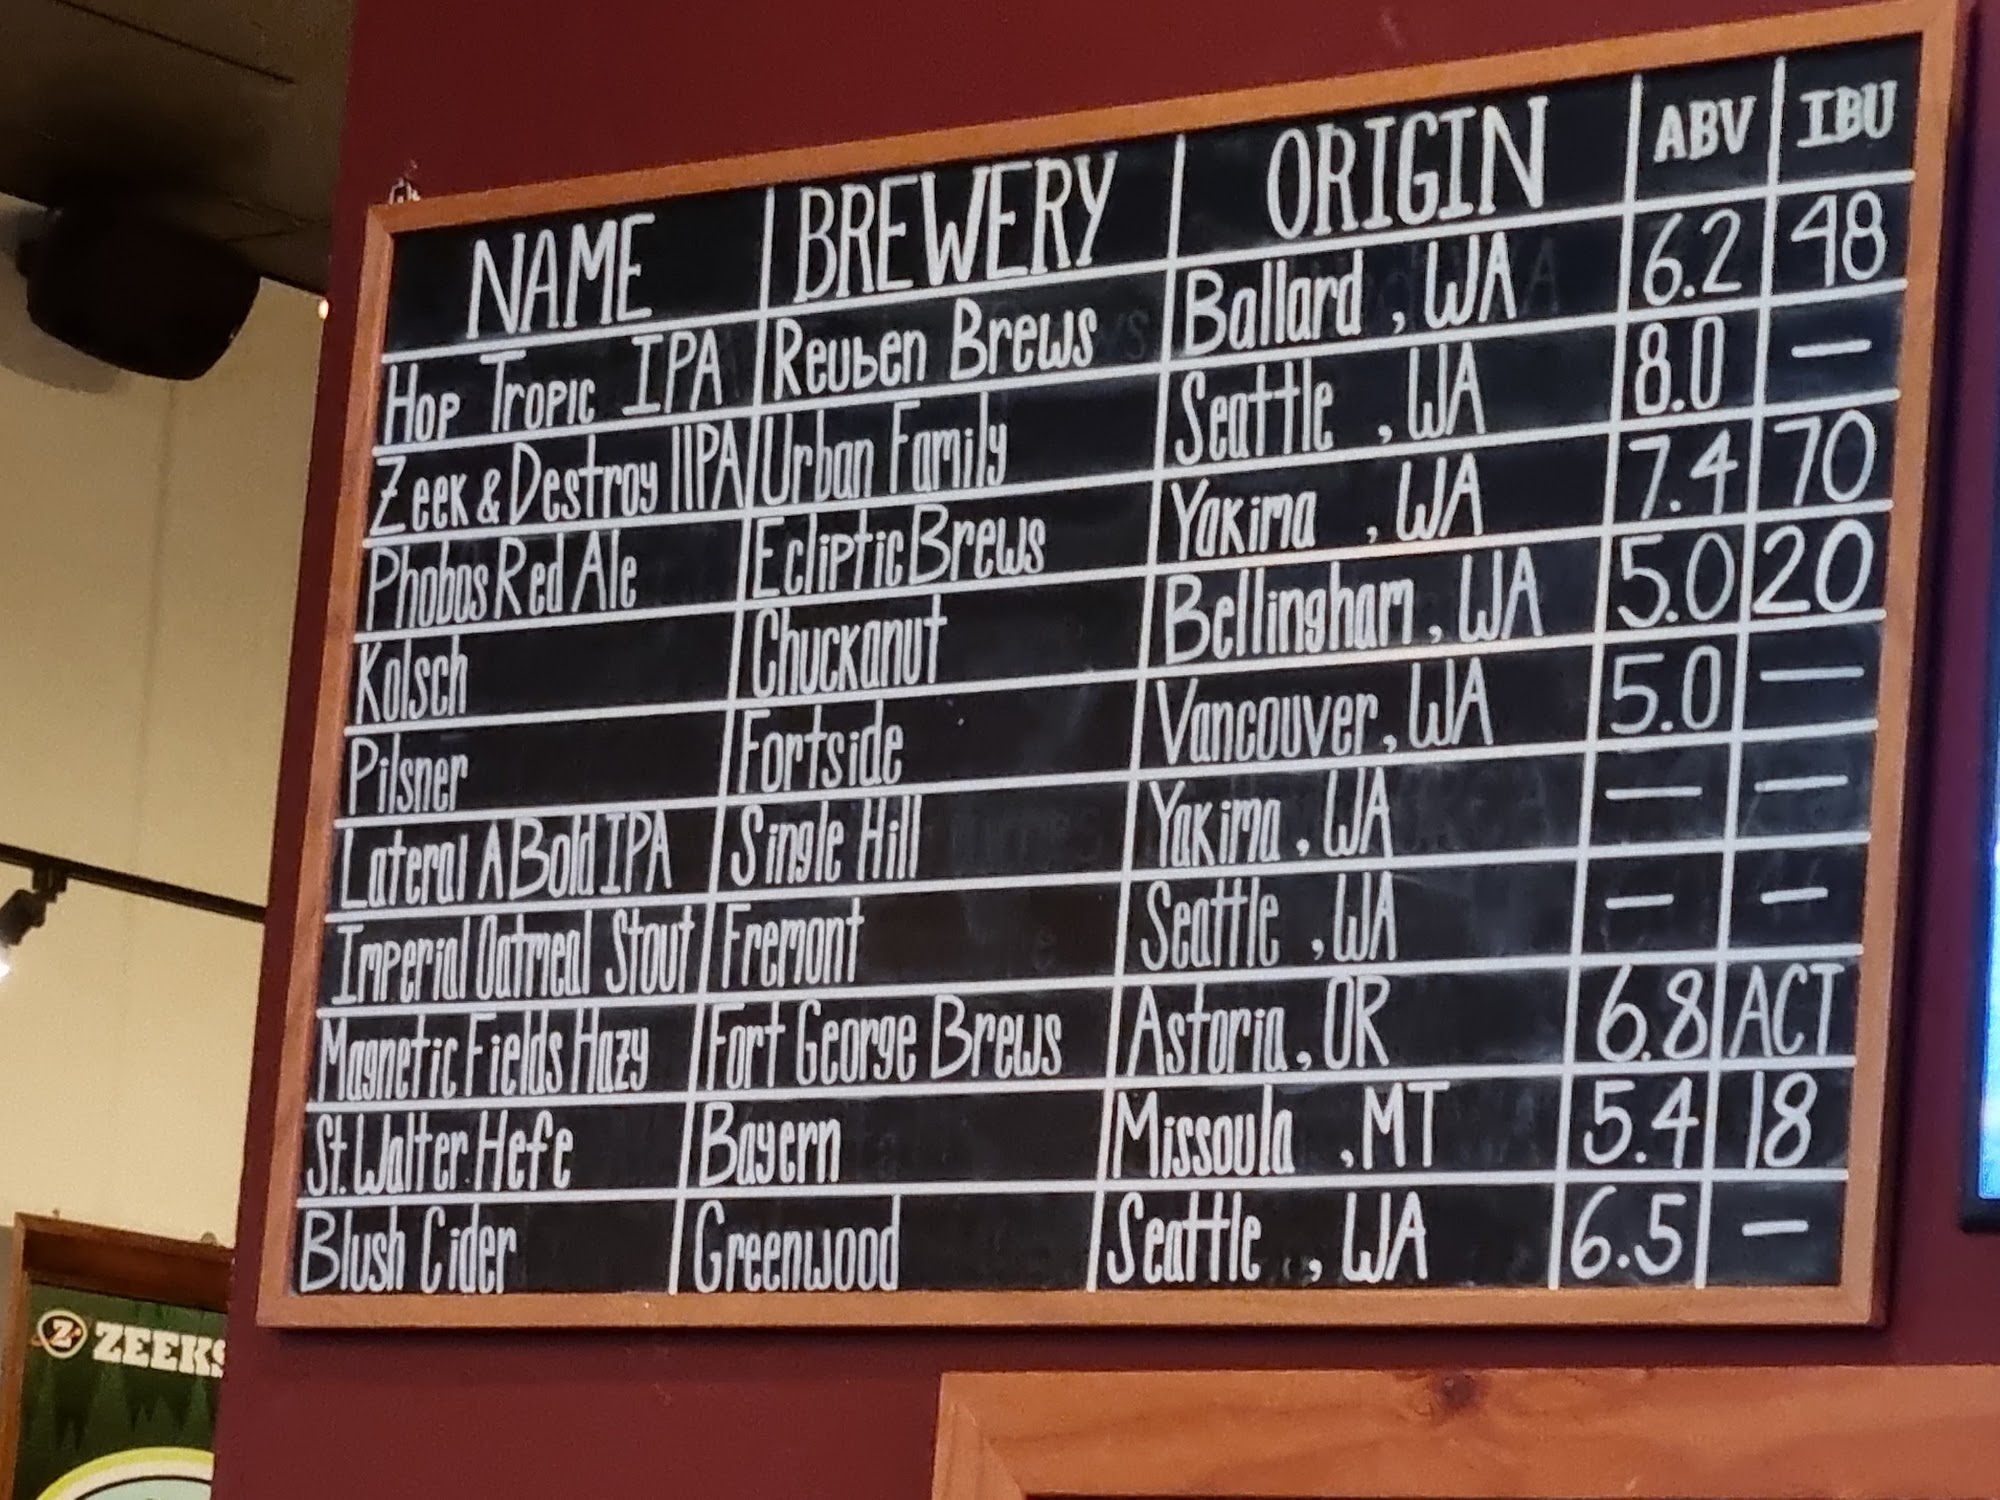 NAME BREWERY ORIGIN ABV IBU
Hop Tropic IPA Reuben Brews Ballard, WA 6.2 48
Zeek & Destroy IIPA Urban Family Seattle, WA 8.0 —
Phobos Red Ale Ecliptic Brews Yakima, WA 7.4 70
Kolsch Chuckanut Bellingham, WA 5.0 20
Pilsner Fortside Vancouver, WA 5.0 —
Lateral A Bold IPA Single Hill Yakima, WA — —
Imperial Oatmeal Stout Fremont Seattle, WA — —
Magnetic Fields Hazy Fort George Brews Astoria, OR 6.8 ACT
St. Walter Hefe Bayern Missoula, MT 5.4 18
Blush Cider Greenwood Seattle, WA 6.5 —
Z ZEEKS